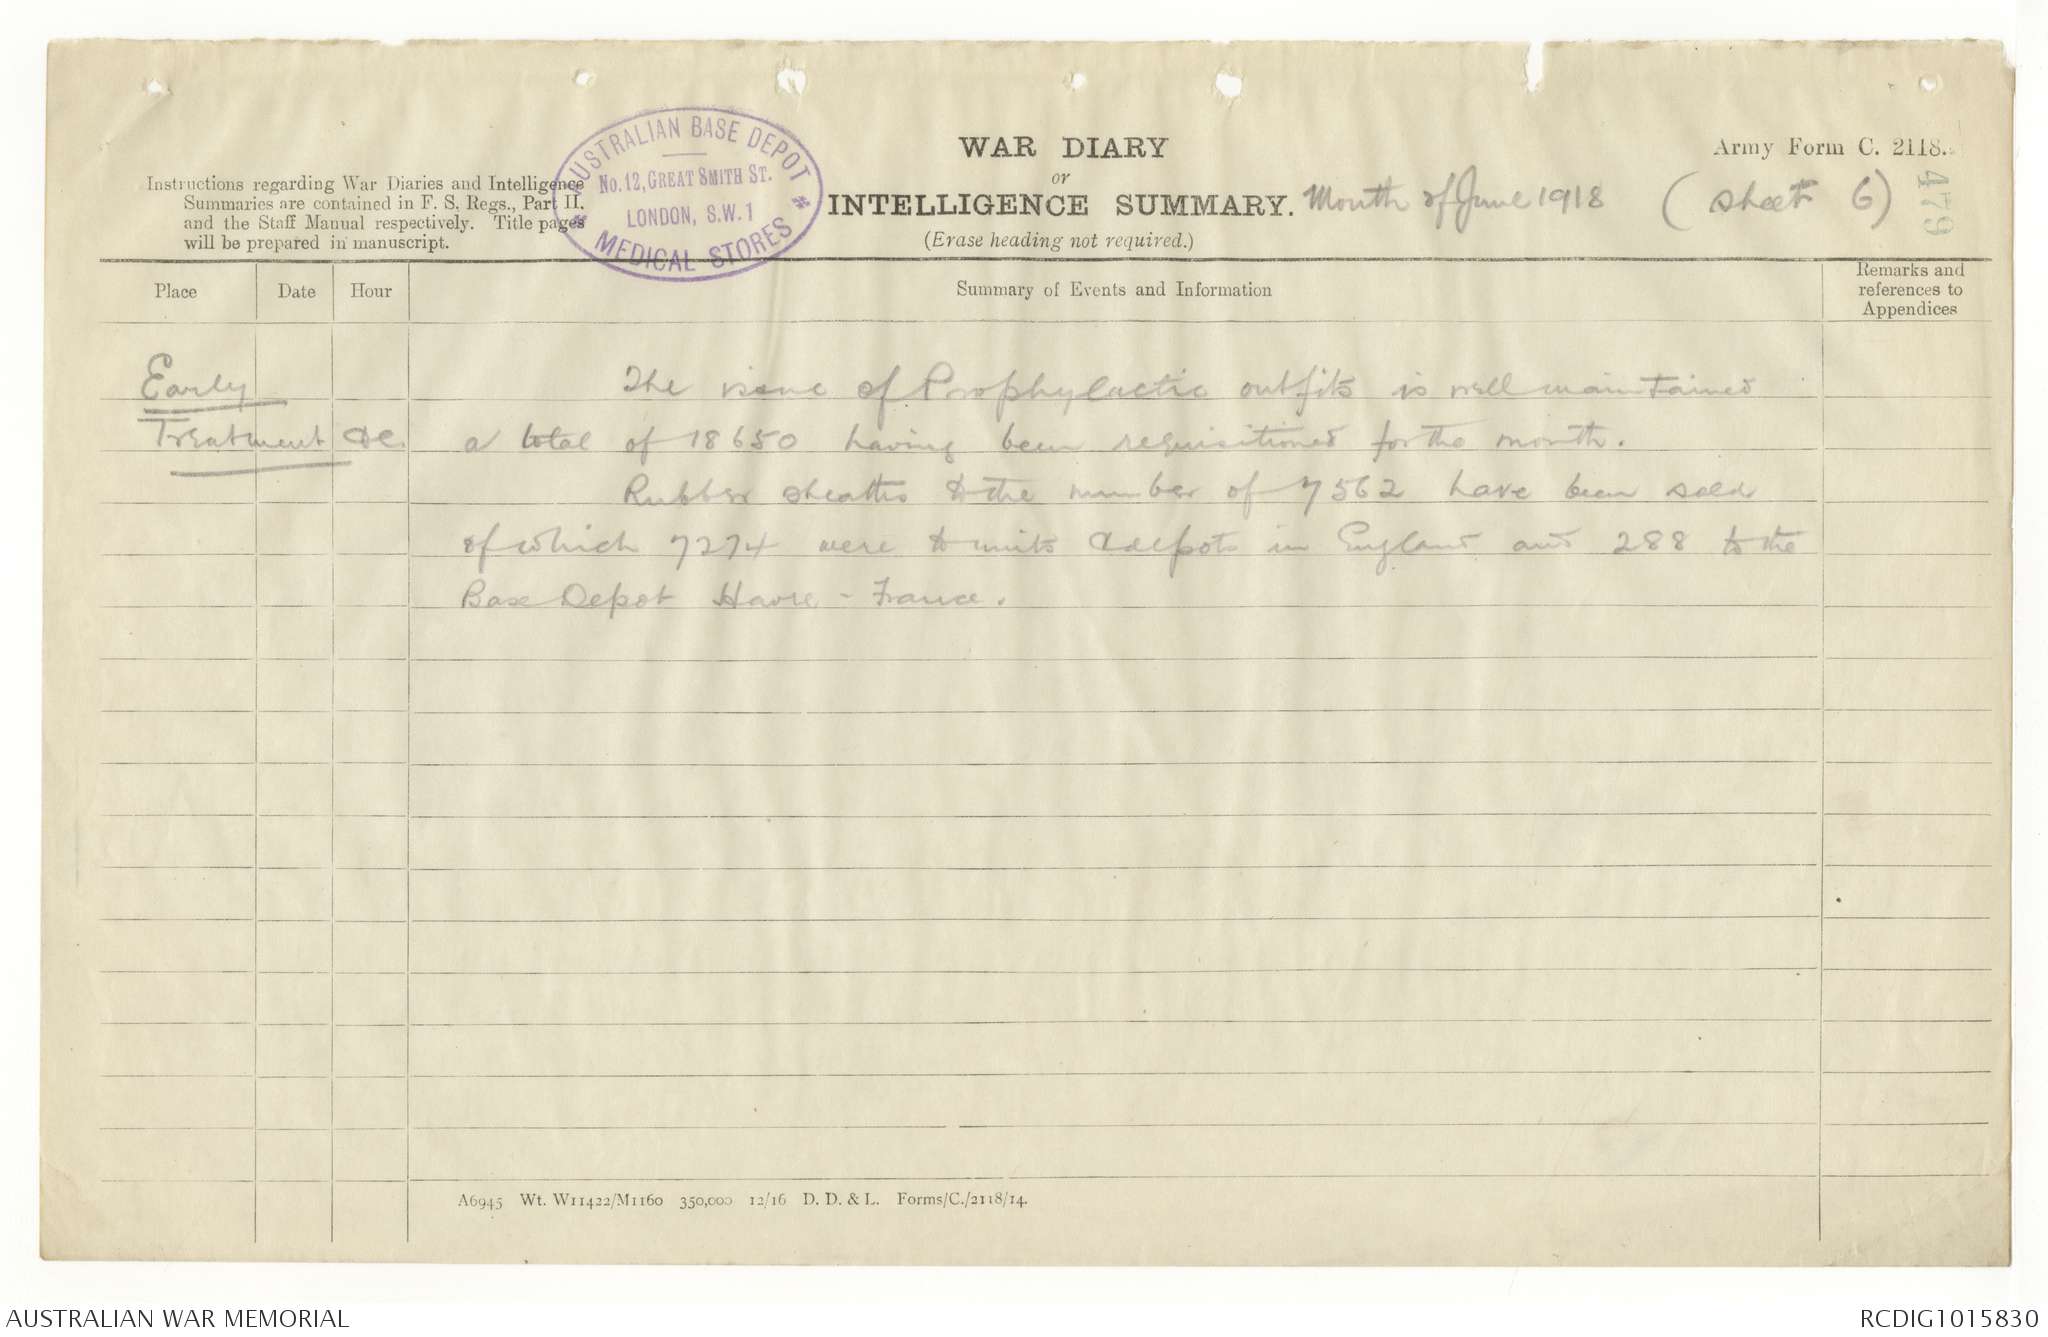 AUSTRALIAN BASE DEPOT
No. 12, GREAT SMITH ST.
LONDON, S.W.1
MEDICAL STORES
WAR DIARY
or
INTELLIGENCE SUMMARY. Month of June 1918 (sheet 6)
(Erase heading not required.)
Army Form C. 2118.
479
Instructions regarding War Diaries and Intelligence
Summaries are contained in F. S. Regs., Part II.
and the Staff Manual respectively. Title pages
will be prepared in manuscript.
Place Date Hour Summary of Events and Information Remarks and
references to
Appendices
Early The issue of Prophylactic outfits is well maintained
Treatment &c. a total of 18650 having been requisitioned for the month.
Rubber sheaths to the number of 7562 have been sold
of which 7274 were to units & depots in England and 288 to the
Base Depot Havre - France.
A6945 Wt. W11422/M1160 350,000 12/16 D. D. & L. Forms/C./2118/14.
AUSTRALIAN WAR MEMORIAL RCDIG1015830